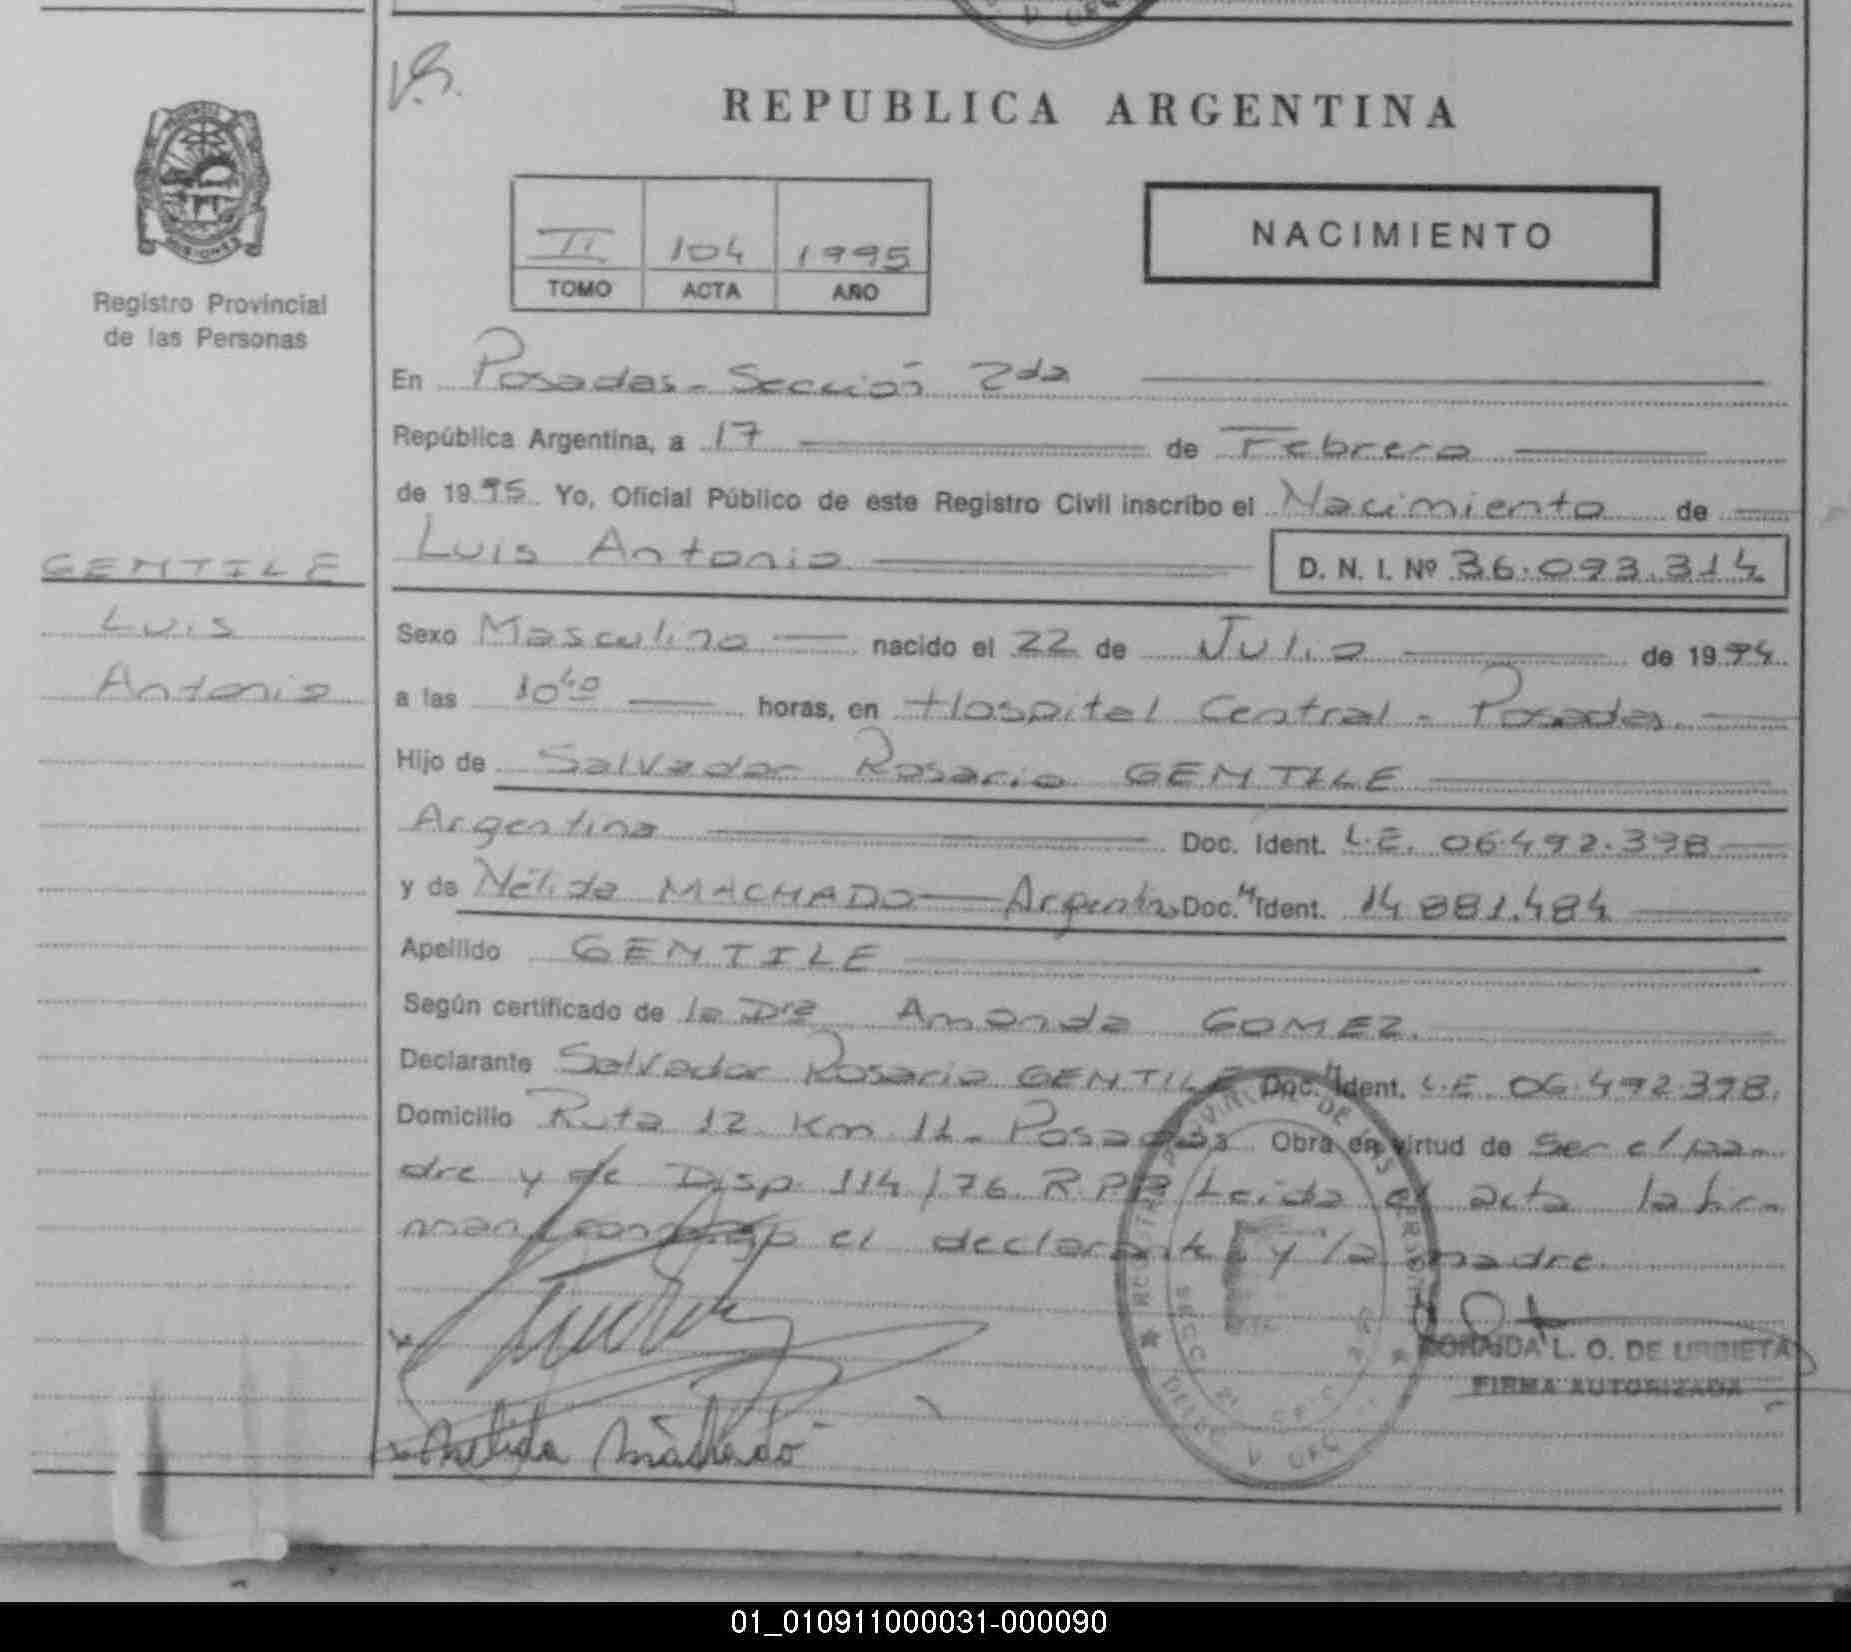 V.B.
REPUBLICA ARGENTINA
II 104 1995
TOMO ACTA AÑO
NACIMIENTO
Registro Provincial
de las Personas
En Posadas - Sección 2da
República Argentina, a 17 de Febrero
de 1995 Yo, Oficial Público de este Registro Civil inscribo el Nacimiento de
Luis Antonio D. N. I. Nº 36.093.314
GENTILE
Luis
Antonio
Sexo Masculino nacido el 22 de Julio de 1994
a las 10 40 horas, en Hospital Central - Posadas
Hijo de Salvador Rosario GENTILE
Argentina Doc. Ident. L.E. 06.492.398
y de Nélida MACHADO Argentina Doc. Ident. 14.881.484
Apellido GENTILE
Según certificado de la Dra Amanda GOMEZ.
Declarante Salvador Rosario GENTILE Doc. Ident. L.E. 06.492.398.
Domicilio Ruta 12 Km 11 - Posadas Obra en virtud de ser el pa-
dre y de Disp. 114/76 R.P.P. Leida el acta la fir-
man conmigo el declarante y la madre.
L. O. DE URBIETA
FIRMA AUTORIZADA
Nelida Machado
01_010911000031-000090